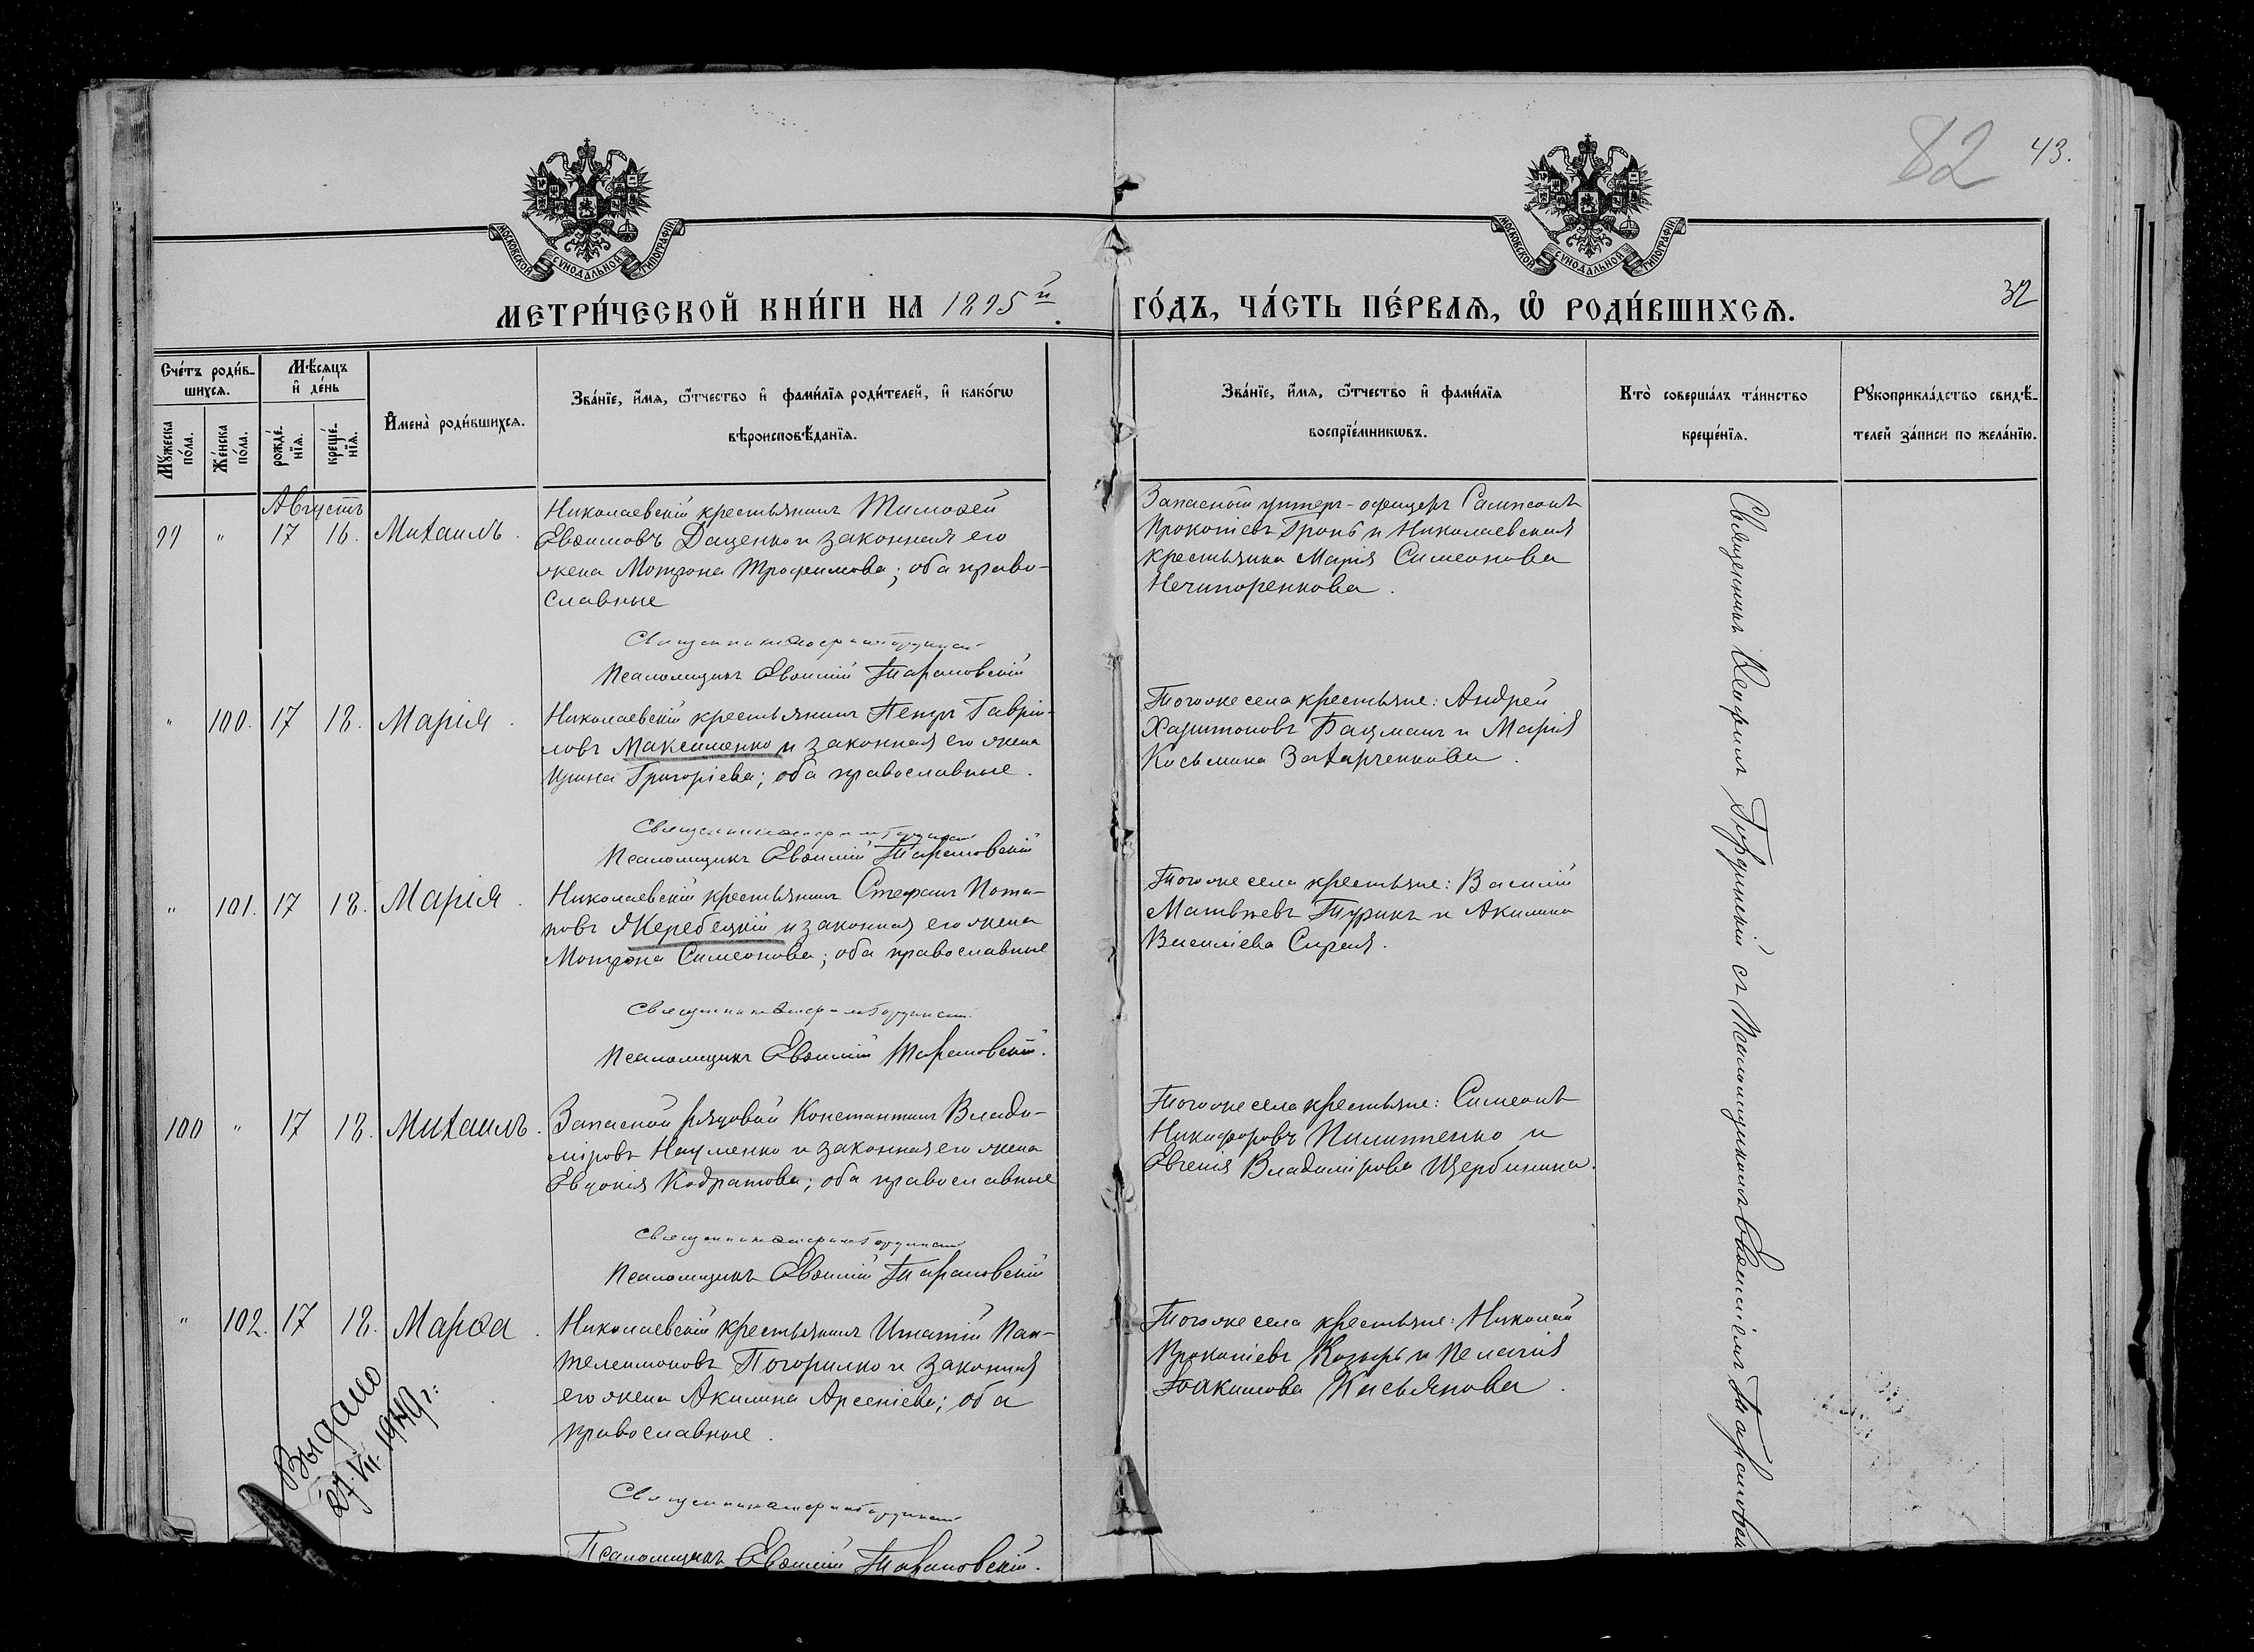 82
43.
МОСКОВСКОЙ СУНОДАЛЬНОЙ ТИПОГРАФІИ.
МОСКОВСКОЙ СУНОДАЛЬНОЙ ТИПОГРАФІИ.
МЕТРИ́ЧЕСКОЙ КНИ́ГИ НА 1895й ГО́ДЪ, ЧА́СТЬ ПЕ́РВАѦ, Ѽ РОДИ́ВШИХСѦ.
32
Сче́тъ роди́в-
шихсѧ.
Мѣ́сѧцъ
и҆ де́нь
Мꙋ́жеска
по́ла.
Же́нска
по́ла.
рожде́-
нїѧ.
креще́-
нїѧ.
И҆мена̀ роди́вшихсѧ.
Зва́нїе, и҆́мѧ, ѻ҆́тчество и҆ фами́лїѧ роди́телей, и҆ како́гѡ
вѣроисповѣ́данїѧ.
Зва́нїе, и҆́мѧ, ѻ҆́тчество и҆ фами́лїѧ
воспрїе́мникѡвъ.
Кто̀ соверша́лъ та́инство
креще́нїѧ.
Рꙋкоприкла́дство свидѣ́-
телей за́писи по жела́нїю.
Августъ
99 " 17 18. Михаилъ.
Николаевскій крестьянинъ Тимоѳей
Евѳимовъ Даценко и законная его
жена Мотрона Трофимова; оба право-
славные
Священникъ
Псаломщикъ Евѳимій Тарановскій
Запасный унтеръ-офицеръ Сампсонъ
Прокопіевъ Гронь и Николаевская
крестьянка Марія Симеонова
Нечипоренкова.
" 100. 17 18. Марія.
Николаевскій крестьянинъ Петръ Гаврі-
ловъ Максименко и законная его жена
Ирина Григоріева; оба православные.
Священникъ
Псаломщикъ Евѳимій Тарановскій
Того же села крестьяне: Андрей
Харитоновъ Бацманъ и Марія
Косьмина Захарченкова.
" 101. 17 18. Марія.
Николаевскій крестьянинъ Стефанъ Пота-
повъ Жеребецкій и законная его жена
Мотрона Симеонова; оба православные
Священникъ
Псаломщикъ Евѳимій Тарановскій.
Того же села крестьяне: Василій
Матвѣевъ Турикъ и Акилина
Василіева Сирая.
100 " 17 18. Михаилъ.
Запасной рядовой Константинъ Влади-
міровъ Науменко и законная его жена
Евдокія Кодратова; оба православные
Священникъ
Псаломщикъ Евѳимій Тарановскій
Того же села крестьяне: Симеонъ
Никифоровъ Пилипенко и
Евгенія Владимірова Щербинина.
" 102. 17 18. Марѳа.
Николаевскій крестьянинъ Игнатій Пан-
телеимоновъ Погорилко и законная
его жена Акилина Арсеніева; оба
православные.
Священникъ
Псаломщикъ Евѳимій Тарановскій.
Того же села крестьяне: Николай
Прокопіевъ Козырь и Пелагія
Іоакимова Касьянова.
Выдано
27.VII.1940г.
Священникъ съ Псаломщикомъ Евѳиміемъ Тарановским